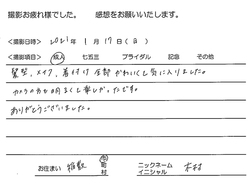 撮影お疲れ様でした。 感想をお願いいたします。
<撮影日時> 2021年 1月 17日 (日)
<撮影項目> 成人 七五三 ブライダル 記念 その他
髪型、メイク、着付け 全部 かわいくて気に入りました。
カメラの方も明るくて楽しかったです。
ありがとうございました。
お住まい 市 町 村
ニックネーム イニシャル 木村